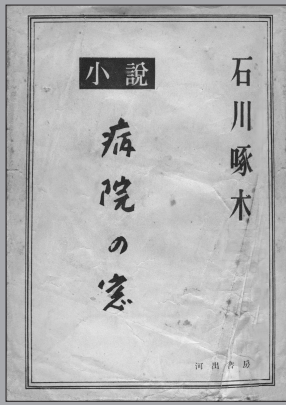 石川啄木
小說
病院の窓
河出書房